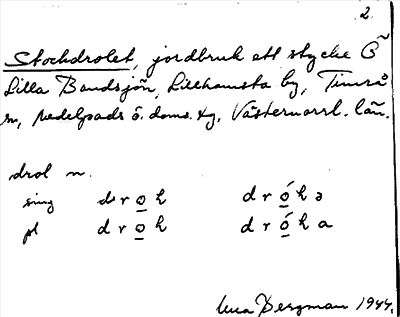 2.
Stockdrolet, jordbruk ett stycke Ö
Lilla Bandsjön, Lillhamsta by, Timrå
sn, Medelpads ö. doms. tg, Västernorrl. län.
drol n.
sing d r o h d r ó h ə
pl d r o h d r ó h a
Bergman 1944.